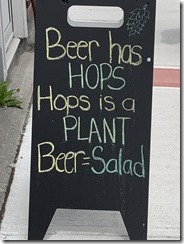 Beer has
HOPS
Hops is a
PLANT
Beer=Salad